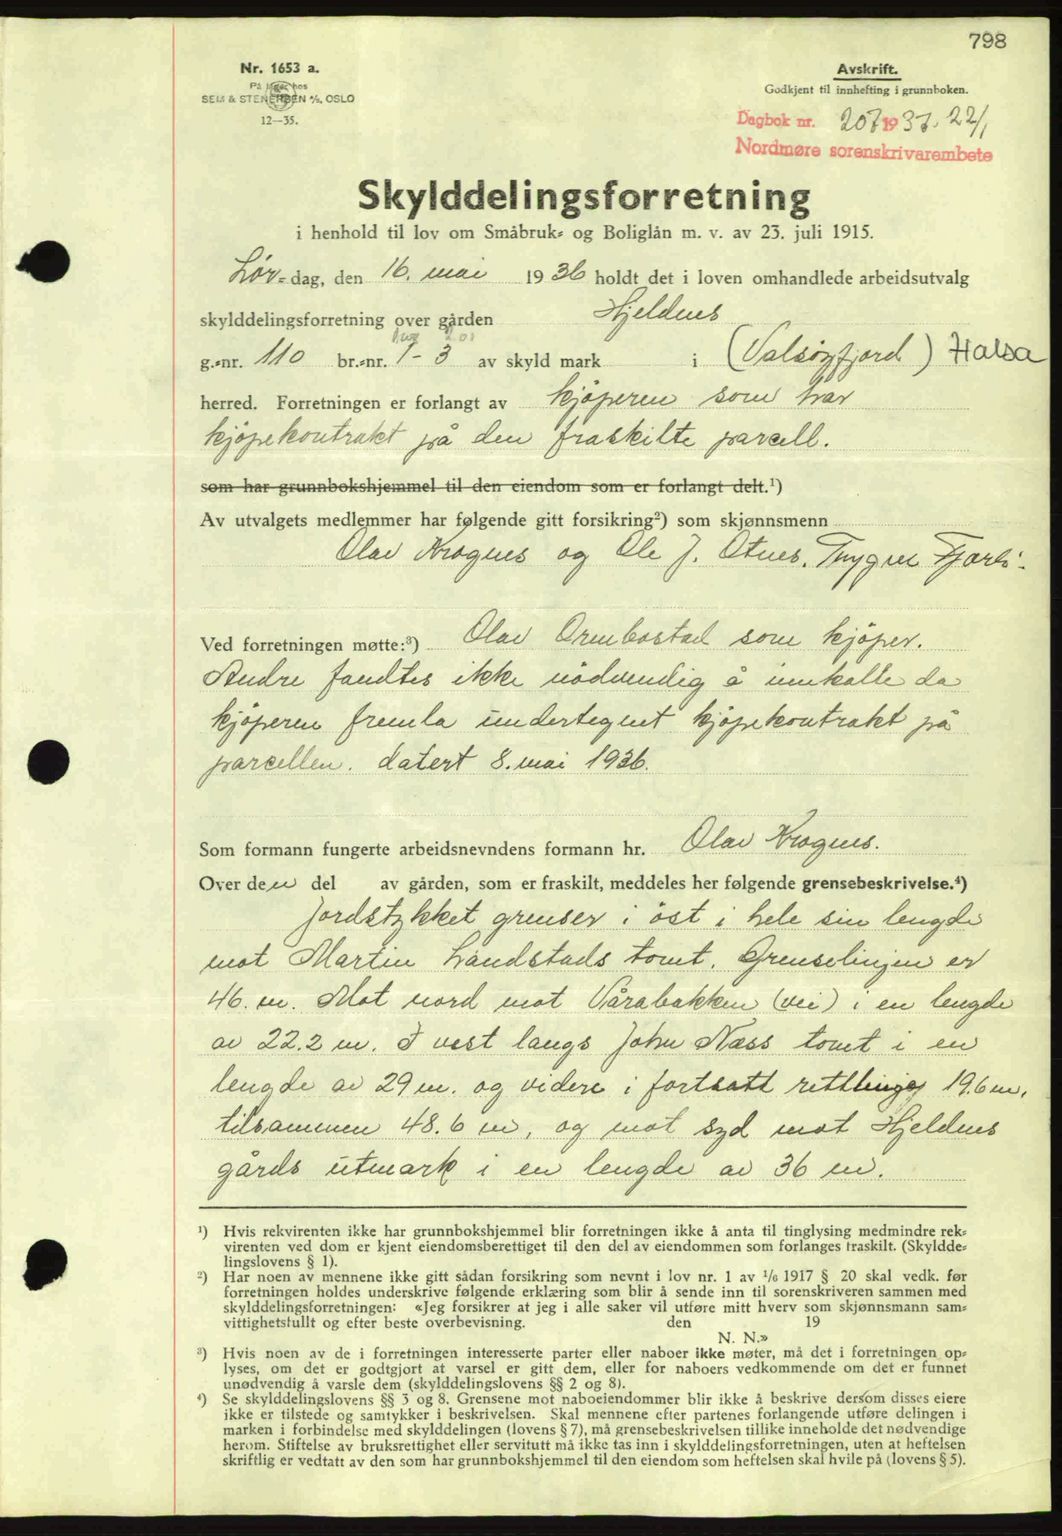 798
Nr. 1653 a.
På lager hos
SEM & STENERSEN A/S, OSLO
12—35.
Avskrift.
Godkjent til innhefting i grunnboken.
Dagbok nr. 207 1937. 22/1
Nordmøre sorenskrivarembete
Skylddelingsforretning
i henhold til lov om Småbruk- og Boliglån m. v. av 23. juli 1915.
Lør- dag, den 16. mai 1936 holdt det i loven omhandlede arbeidsutvalg
skylddelingsforretning over gården Hjeldnes
g.-nr. 110 br.-nr. 1-3 av skyld mark i (Valsøyfjord) Halsa
herred. Forretningen er forlangt av kjöperen som har
kjöpekontrakt på den fraskilte parcell.
som har grunnbokshjemmel til den eiendom som er forlangt delt.¹)
Av utvalgets medlemmer har følgende gitt forsikring²) som skjønnsmenn
Olav Krognes og Ole J. Otnes. Trygve
Ved forretningen møtte:³) Olav Ormbostad som kjöper.
Andre fandtes ikke nödvendig å innkalle da
kjöperen fremla undertegnet kjöpekontrakt på
parcellen. datert 8. mai 1936.
Som formann fungerte arbeidsnevndens formann hr. Olav Krognes.
Over den del av gården, som er fraskilt, meddeles her følgende grensebeskrivelse.⁴)
Jordstykket grenser i öst i hele sin lengde
mot Martin Landstads tomt. Grenselinjen er
46. m. Mot nord mot Vårabakken (vei) i en lengde
av 22.2 m. I vest langs John Næss tomt i en
lengde av 29 m. og videre i fortsatt rettlinje 19.6 m.
tilsammen 48.6 m, og mot syd mot Hjeldnes
gårds utmark i en lengde av 36 m.
¹) Hvis rekvirenten ikke har grunnbokshjemmel blir forretningen ikke å anta til tinglysing medmindre rek-
virenten ved dom er kjent eiendomsberettiget til den del av eiendommen som forlanges fraskilt. (Skyldde-
lingslovens § 1).
²) Har noen av mennene ikke gitt sådan forsikring som nevnt i lov nr. 1 av 1/6 1917 § 20 skal vedk. før
forretningen holdes underskrive følgende erklæring som blir å sende inn til sorenskriveren sammen med
skylddelingsforretningen: «Jeg forsikrer at jeg i alle saker vil utføre mitt hverv som skjønnsmann sam-
vittighetsfullt og efter beste overbevisning. den 19
N. N.»
³) Hvis noen av de i forretningen interesserte parter eller naboer ikke møter, må det i forretningen op-
lyses, om det er godtgjort at varsel er gitt dem, eller for naboers vedkommende om det er funnet
unødvendig å varsle dem (skylddelingslovens §§ 2 og 8).
⁴) Se skylddelingslovens §§ 3 og 8. Grensene mot naboeiendommer blir ikke å beskrive dersom disses eiere
ikke er tilstede og samtykker i beskrivelsen. Skal mennene efter partenes forlangende utføre delingen i
marken i forbindelse med skylddelingen (lovens § 7), må grensebeskrivelsen tillike inneholde det nødvendige
herom. Stiftelse av bruksrettighet eller servitutt må ikke tas inn i skylddelingsforretningen, uten at heftelsen
skriftlig er vedtatt av den som har grunnbokshjemmel til den eiendom som heftelsen skal hvile på (lovens § 5).